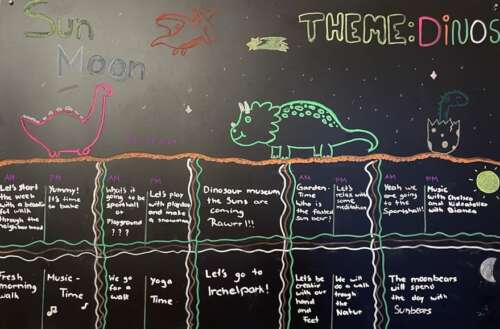 Sun
Moon
THEME: DINOS
AM
Let's start
the week
with a beauti
ful walk
through the
neighborhood
PM
Yummy!
It's time
to bake
AM
What's it
going to be
sportshall
or
Playground
? ? ?
PM
Let's play
with playdoe
and make
a snowman
Dinosaur museum
the Suns are
coming
Rawrr!!!
AM
Garden-
Time
Who is
the fasted
Sun bear?
PM
Let's
relax with
some
meditation
AM
Yeah we
are going
to the
Sportshall!
PM
Music
with Chelsea
and kidsatelier
with Bianca
Fresh
morning
walk
Music-
Time
We go
for a
walk
Yoga
Time
Let's go to
Irchelpark!
Let's be
creativ with
our hand
and
Feet
We will
do a walk
trough
the
Natur
The moonbears
will spend
the day with
Sunbears